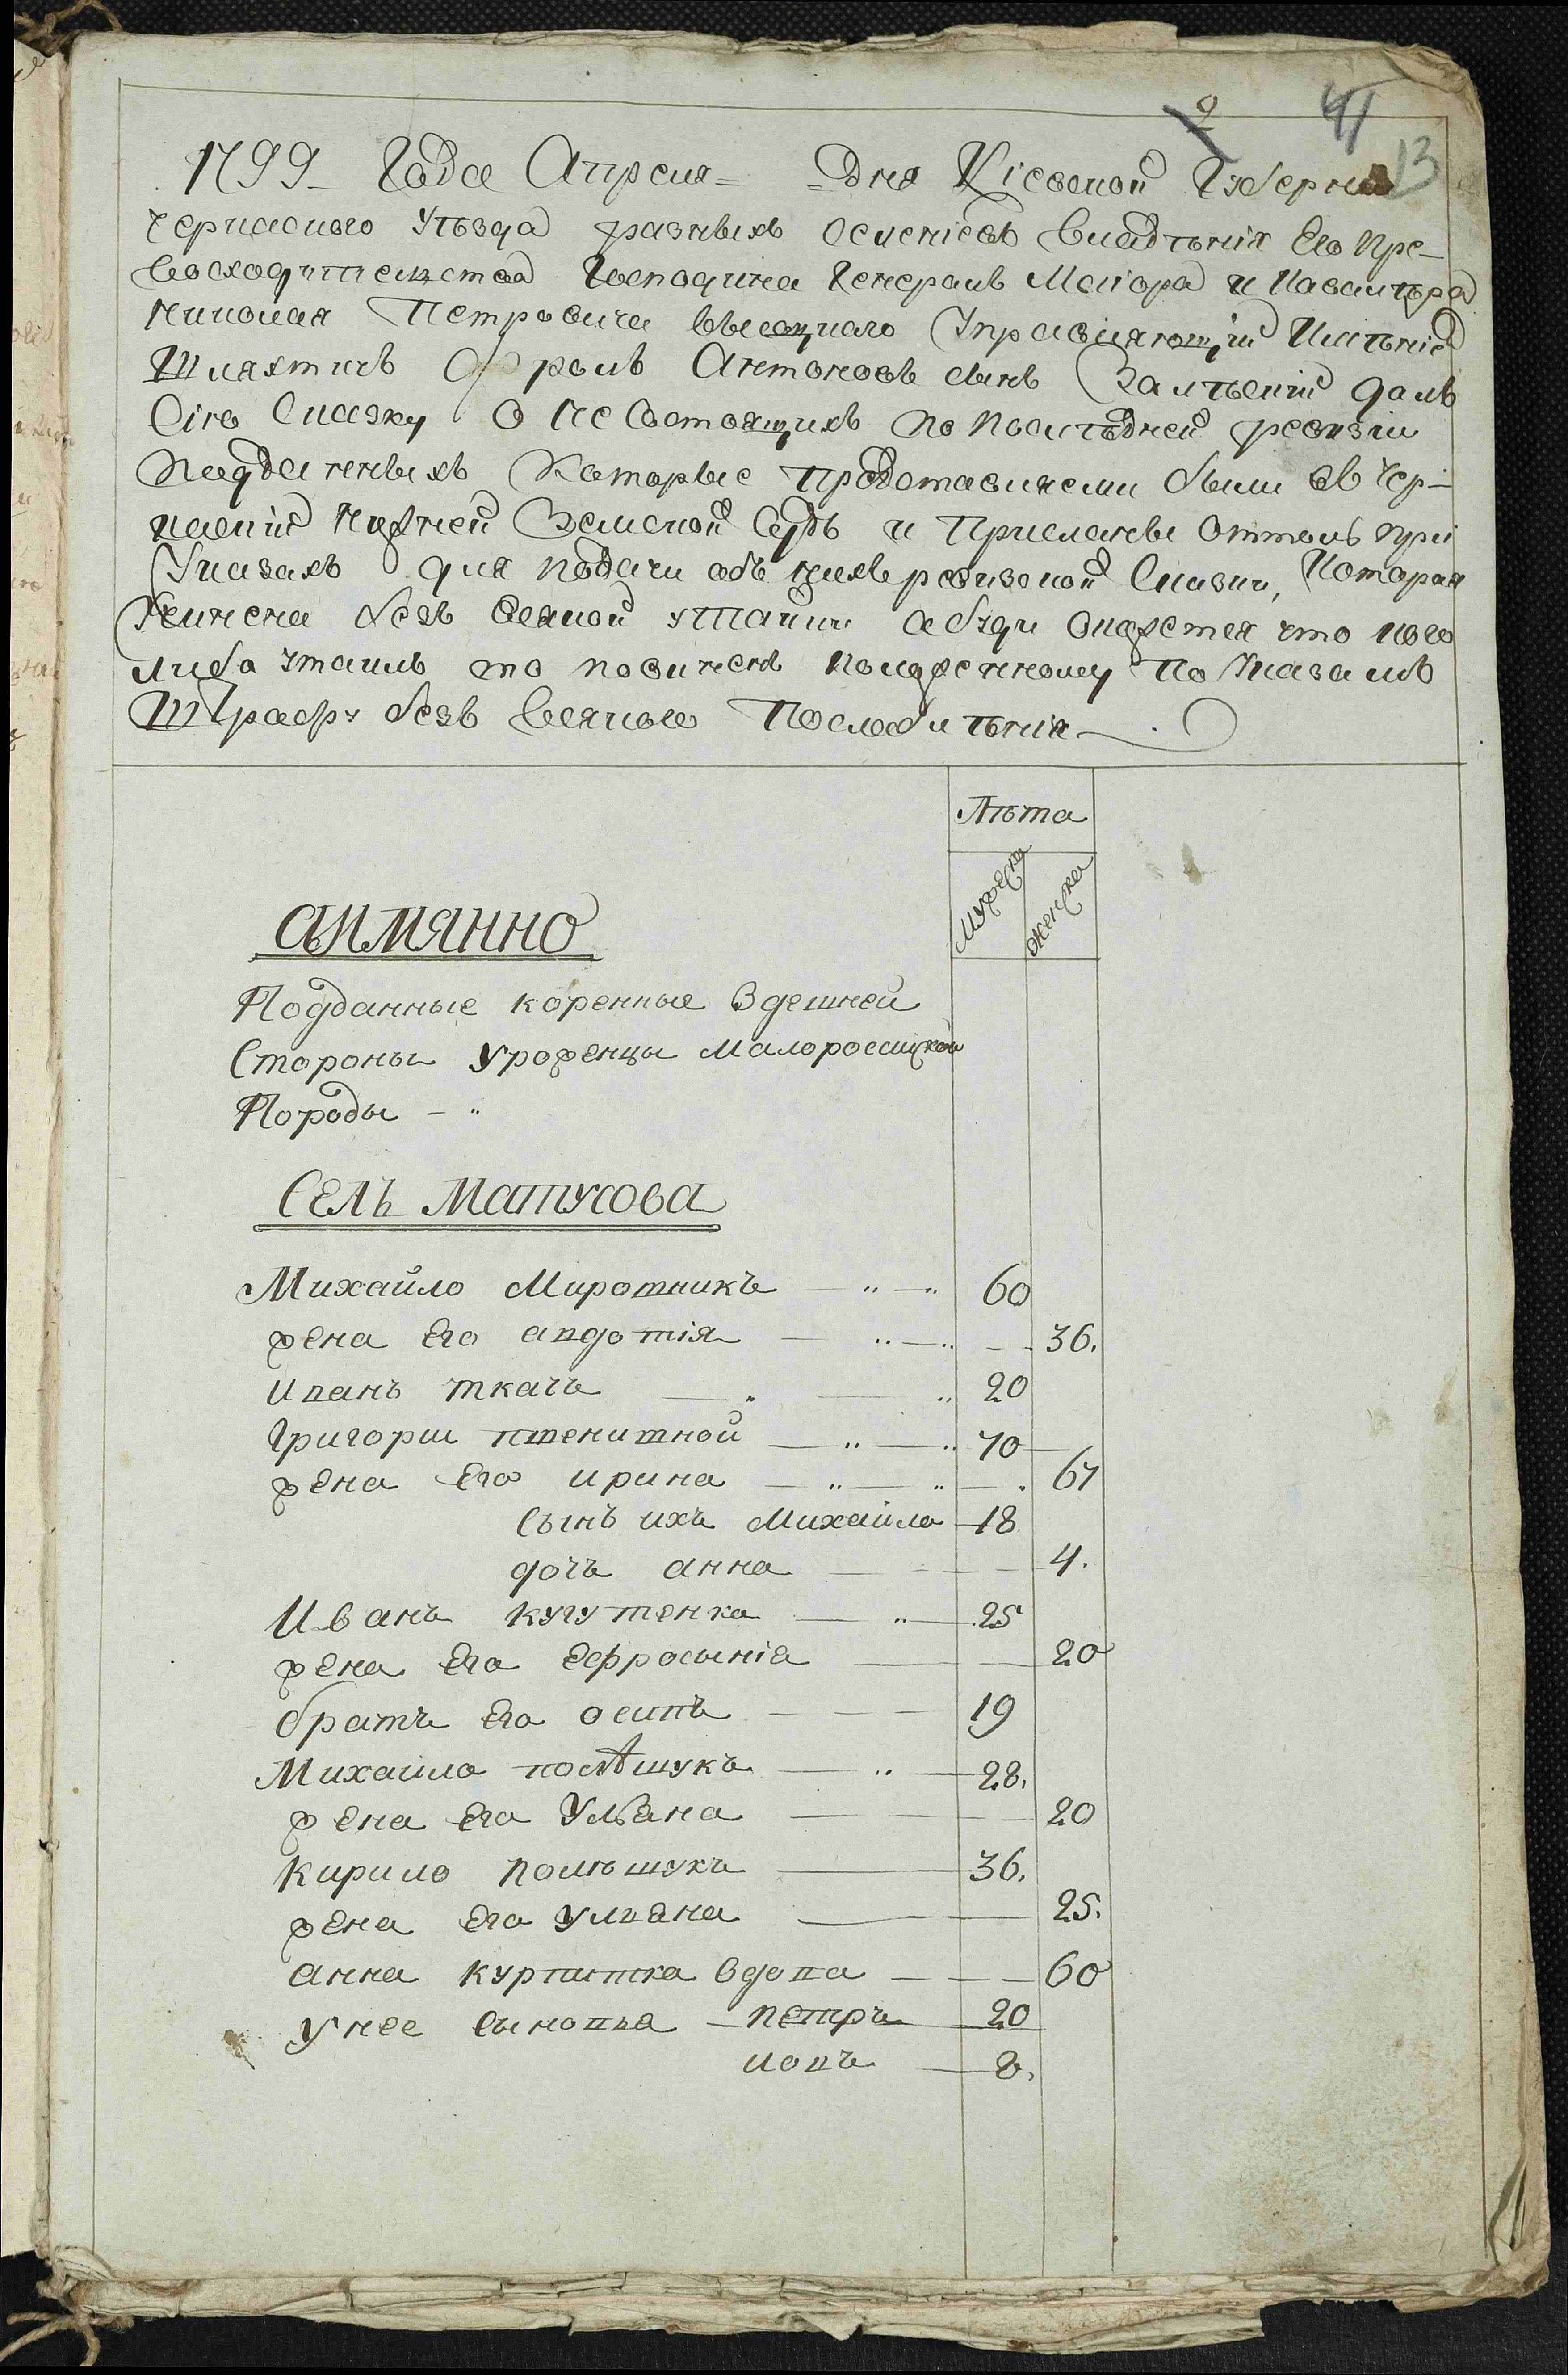 2 41
13
1799 Года Апреля= =дня Кіевской Губерніи
черкаского уъзда разныхъ селеніевъ владънія Его пре-
восходителства Господина Генералъ Маіора и Кавалъра
Николая Петровича Высоцкаго Управляющій Имъніе
Шляхтичъ Фролъ Антоновъ сынъ далъ
Сію Сказку О не Состоящихъ по послъдней ревизіи
подданныхъ Которые представляеми были въ Чер-
каскій Нижней Земской Судъ и Присланы Оттоль при
Указахъ для подачи объ нихъ ревизской Сказки, Которая
учинена безъ всякой утайки а буди окажется что кого
либо утаилъ то повиненъ положенному По Указамъ
Штрафу безъ всякаго Послабленія
Лъта
мужска
женска
аимянно
Подданные коренные Здешней
Стороны Уроженцы Малоросийской
Породы - "
Селъ Матусова
Михайло Мирошникъ — " — " 60
жена его авдотія — " — " - - 36.
иванъ ткачъ — " — " 20
Григорий пшенишной — " — " 70 —
жена его ирина — " — " — . 67
Сынъ ихъ Михайло 18
дочъ анна — - - — 4.
Иванъ кугутенко — " — 25
жена его Ефросинія — — 20
братъ его осипъ - — — 19
Михайло полѣшукъ — " — 28.
жена его Ульяна — — 20
Кирило Полъшукъ — 36.
жена его ульяна — — 25.
анна вдова — - — 60
у нее сыновья — петръ 20
иовъ — 8.